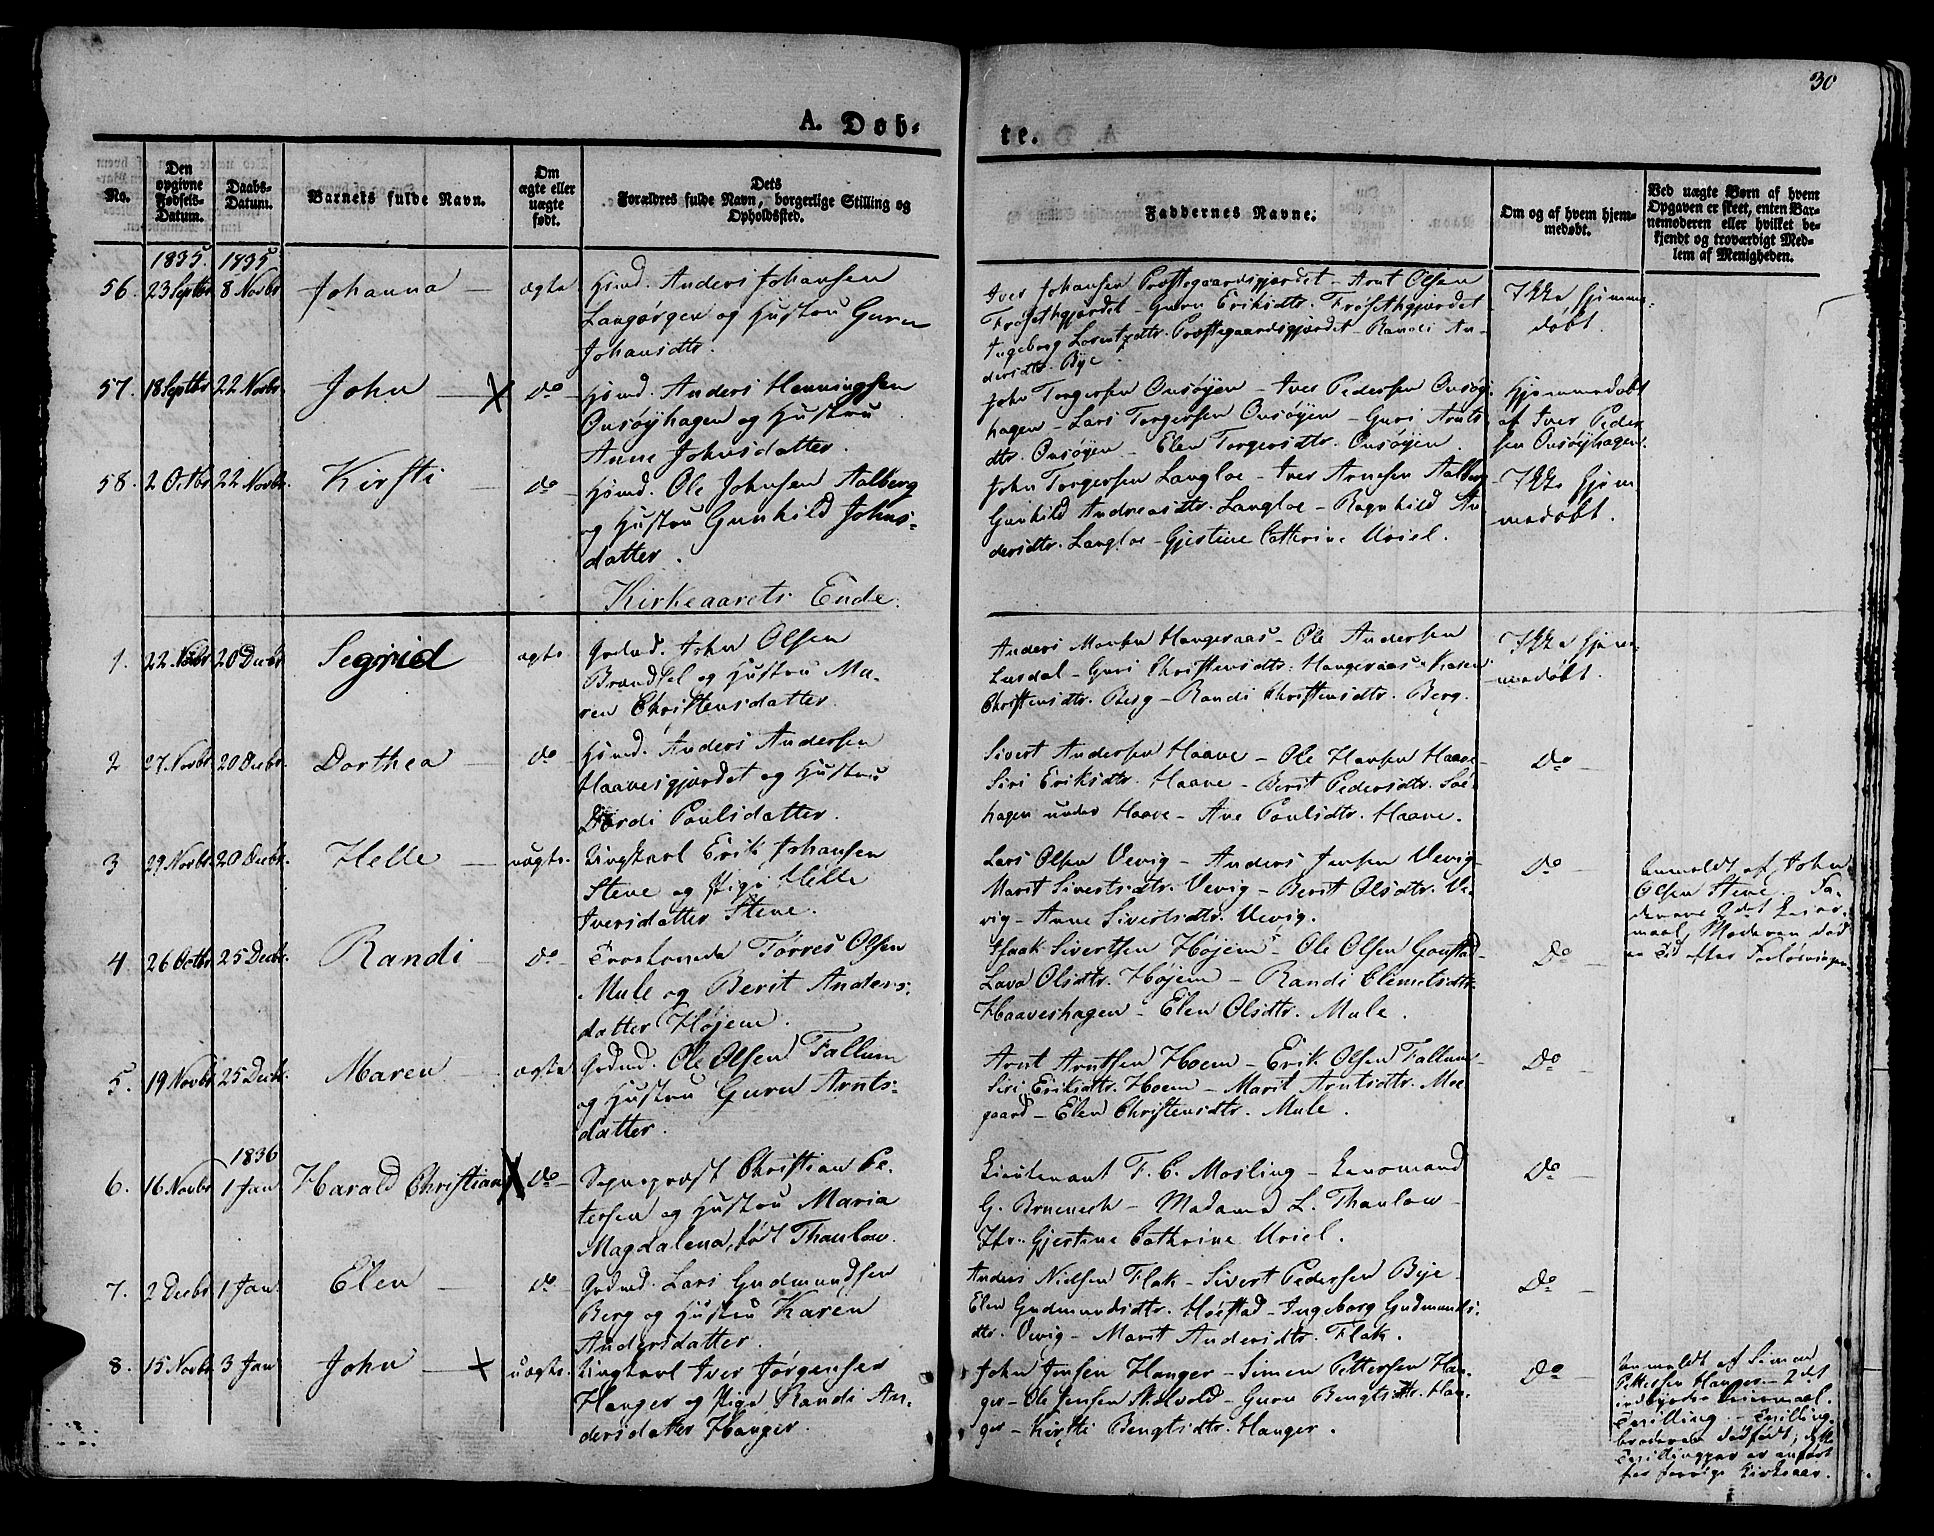 30
A. Døb-
te.
No.
Den opgivne Fødsels-Datum.
Daabs-Datum.
Barnets fulde Navn.
Om ægte eller uægte født.
Dets Forældres fulde Navn, borgerlige Stilling og Opholdssted.
Faddernes Navne.
Om og af hvem hjem-
medøbt.
Ved uægte Børn af hvem
Opgaven er skeet, enten Bar-
nemoderen eller hvilket be-
kjendt og troværdigt Med-
lem af Menigheden.
1835. 1835
56. 23 Septbr 8 Novbr Johanna – ægte
Huusmd. Anders Johansen
Langørgen og Hustru Guru
Johansdtr.
Iver Johansen Præstegaardsgjærdet – Arnt Olsen
Frøsethgjærdet – Guru Eriksdtr. Frøsethgjærdet
Ingeborg Lorentzdtr. Præstegaardsgjærdet – Randi An-
dersdtr. Bye
Ikke hjemme-
døbt.
57. 18 Septbr 22 Novbr. John – X do –
Huusmd. Anders Henningsen
Onsøyhagen og Hustru
Anne Johnsdatter.
John Torgersen Onsøyen – Iver Pedersen Onsøy-
hagen – Lars Torgersen Onsøyen – Guri Arnts-
dtr. Onsøyen – Elen Torgersdtr. Onsøyen.
Hjemmedøbt
af Iver Peder-
sen Onsøyhagen
58. 2 Octbr 22 Novbr. Kirsti – do –
Huusmd. Ole Johnsen Aalberg
og Hustru Gunhild Johns-
datter.
John Torgersen Langloe – Iver Arnesen Aalberg –
Gunhild Andreasdtr. Langloe – Ragnhild An-
dersdtr. Langloe – Gjertine Cathrine Uriel.
Ikke hjem-
medøbt.
Kirkeaarets Ende.
1. 22 Novbr 20 Decbr Segrid ægte
Gdmd. John Olsen
Brandsel og Hustru Ma-
ren Christensdatter.
Anders Morten Hangeraas – Ole Andersen
Losdal – Guri Christensdtr. Hangeraas – Karen
Christensdtr. Berg – Randi Christensdtr. Berg.
Ikke hjem-
medøbt.
2 27. Novbr 20 Decbr. Dorthea – do –
Huusmd. Anders Andersen
Haavesgjærdet og Hustru
Dordi Poulsdatter.
Sivert Andersen Haave – Ole Hansen Haave –
Siri Eriksdtr. Haave – Berit Pedersdtr. Soe-
hagen under Haave – Ane Poulsdtr. Haave.
Do –
3 29. Novbr. 20 Decbr. Helle – uægte.
Ungkarl Erik Johansen
Stene og Pige Helle
Iversdatter Stene.
Lars Olsen Uevig – Anders Jensen Uevig –
Marit Sivertsdtr. Uevig – Berit Olsdtr. Ue-
vig – Anne Sivertsdtr. Uevig.
Do –
Anmeldt af John
Olsen Stene. Fa-
derens 2det Leier-
maal, Moderen død
en Tid efter Forløsningen
4 26 Octbr 25 Decbr. Randi – do –
Torres Olsen
Mule og Berit Anders-
datter Højem.
Isaak Sivertsen Højem – Ole Olsen Gomstad –
Lava Olsdtr. Højem – Randi Clemetsdtr.
Haaveshagen – Elen Olsdtr. Mule.
Do –
5. 19 Novbr 25 Decbr. Maren – ægte
Gdmd. Ole Olsen Fallum
og Hustru Guru Arnts-
datter.
Arnt Arntsen Hoem – Erik Olsen Fallum –
Siri Eriksdtr. Hoem – Marit Arntsdtr. Moe-
gaard – Elen Christensdtr. Mule.
Do
1836
6. 16 Novbr 1 Jan Harald Christian X Do –
Sognepræst Christian Pe-
tersen og Hustru Maria
Magdalena, født Thaulow.
Lieutenant F. C. Mosling – Lensmand
G. Brneneck – Madame L. Thaulow –
Jfr. Gjertine Cathrine Uriel.
Do –
7. 2 Decbr 1 Jan. Elen – do
Gdmd. Lars Gudmundsen
Berg og Hustru Karen
Andersdatter.
Anders Nielsen Flak – Sivert Pedersen Bye –
Elen Gudmundsdtr. Høstad – Ingeborg Gudmunds-
dtr. Uevig – Marit Andersdtr. Flak.
Do –
8. 15 Novbr 3 Jan John – X uægte.
Ungkarl Iver Jørgensen
Hanger og Pige Randi An-
dersdatter Hanger.
John Jensen Hanger – Simen Pettersen Han-
ger – Ole Jensen Melvold – Guru Bengtsdtr. Han-
ger – Kirsti Bengtsdtr. Hanger.
Do –
Anmeldt af Simen
Pettersen Hanger – 2det
indbyrdes Leiermaal.
Tvilling – Tvilling-
broderen dødfødt; dette
Tvillingpar er anført
for forrige Kirkeaar.